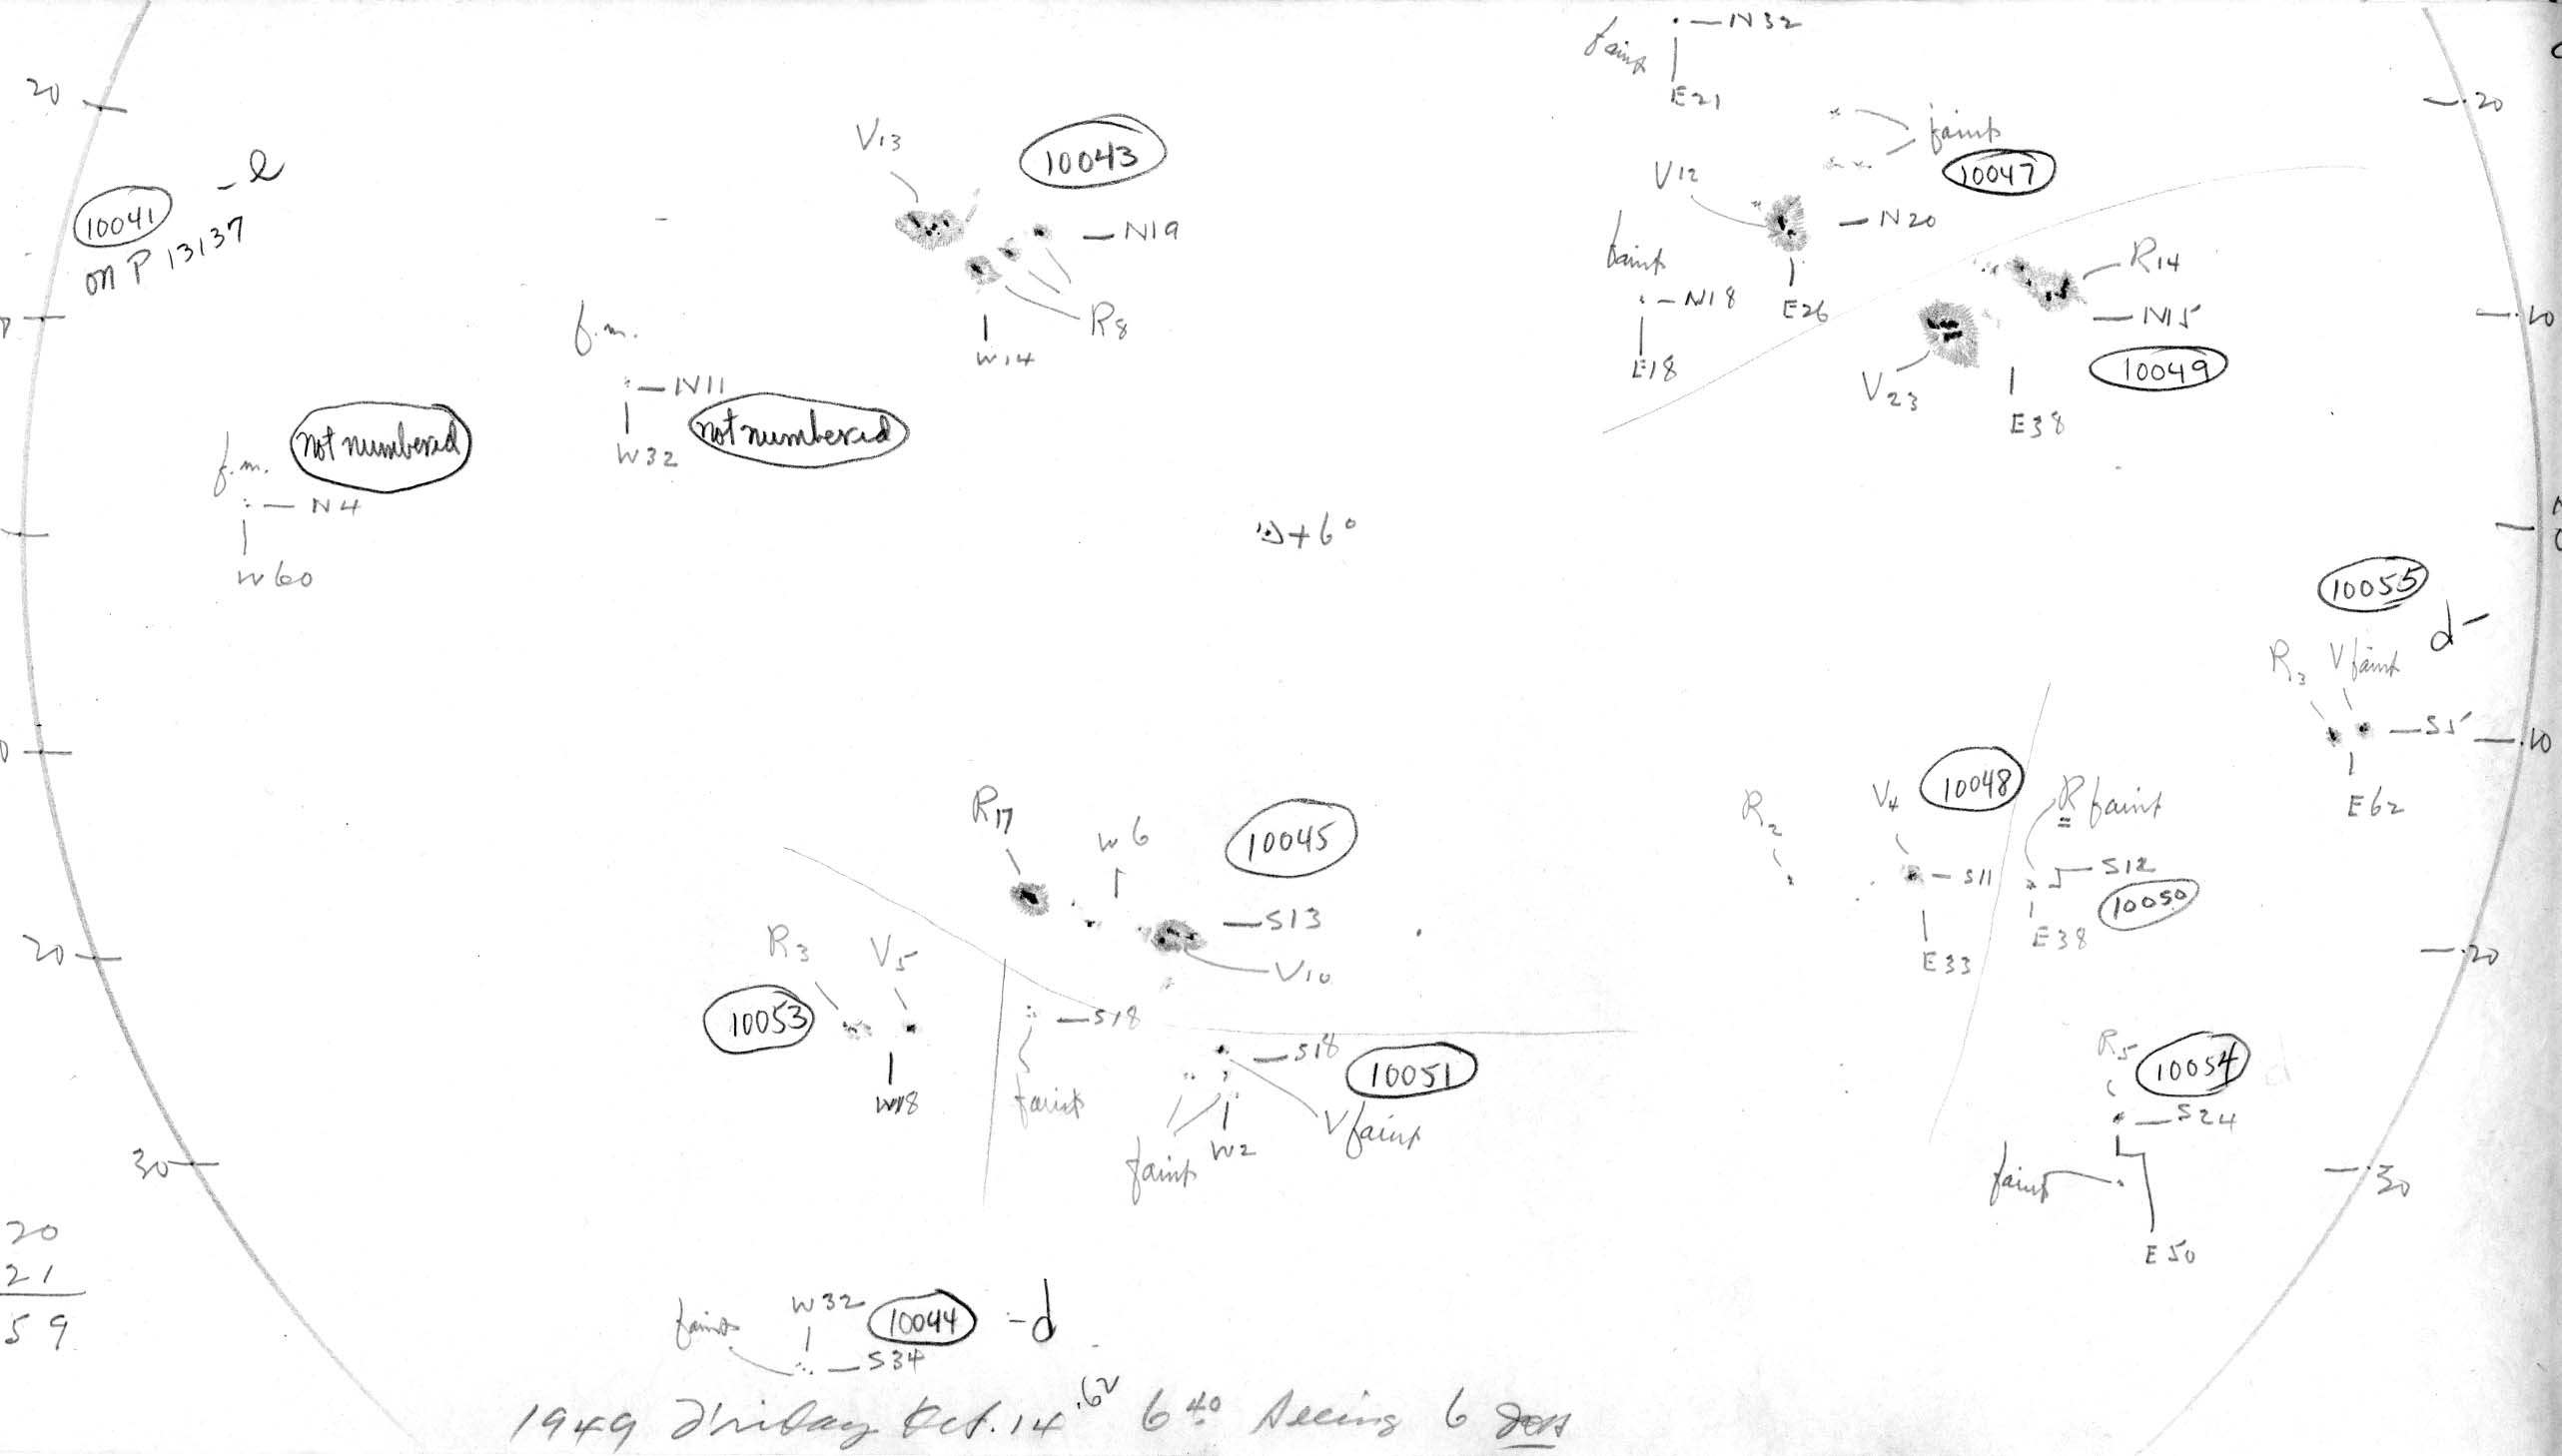 faint
N32
E21
20
20
V13
10043
faint
10041 - e
on P 13137
V12
10047
N19
N20
faint
R14
N18
E26
N15
f.m.
R8
W14
E18
V23
10049
N11
E38
f.m.
not numbered
W32
not numbered
10
N4
+6°
W60
10055
d-
R3
V faint
S5
10
E62
R17
W6
10045
R2
V4
10048
R faint
S11
S12
10050
S13
E38
R3
V5
V10
E33
20
20
10053
S18
S18
10051
R5
10054
W18
faint
V faint
S24
faint
W2
30
faint
30
20
21
59
E50
faint
W32
10044
-d
S34
1949 Friday Oct. 14 .62 6 40 Seeing 6